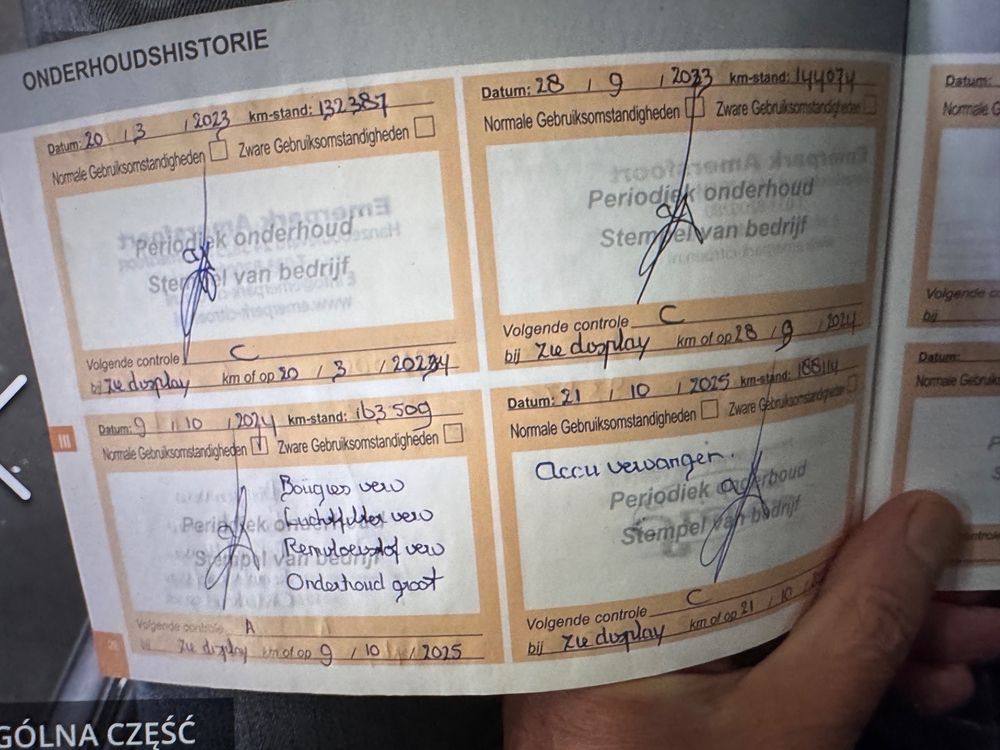 ONDERHOUDSHISTORIE
Datum: 20 / 3 / 2023 km-stand: 132387
Normale Gebruiksomstandigheden Zware Gebruiksomstandigheden
Periodiek onderhoud
Stempel van bedrijf
Volgende controle C
bij zie display km of op 20 / 3 / 20234
Datum: 28 / 9 / 2023 km-stand: 144074
Normale Gebruiksomstandigheden Zware Gebruiksomstandigheden
Periodiek onderhoud
Stempel van bedrijf
Volgende controle C
bij zie display km of op 28 / 9 / 2024
Datum: 9 / 10 / 2024 km-stand: 163509
Normale Gebruiksomstandigheden Zware Gebruiksomstandigheden
Bougies verv
Luchtfilter verv
Periodiek onderhoud
Remvloeistof verv
Stempel van bedrijf
Onderhoud groot
Volgende controle A
zie display km of op 9 / 10 / 2025
Datum: 21 / 10 / 2025 km-stand: 188114
Normale Gebruiksomstandigheden Zware Gebruiksomstandigheden
Accu vervangen.
Periodiek onderhoud
Stempel van bedrijf
Volgende controle C
bij zie display km of op 21 / 10 /
Datum:
Volgende
bij
Datum:
III
GÓLNA CZĘŚĆ